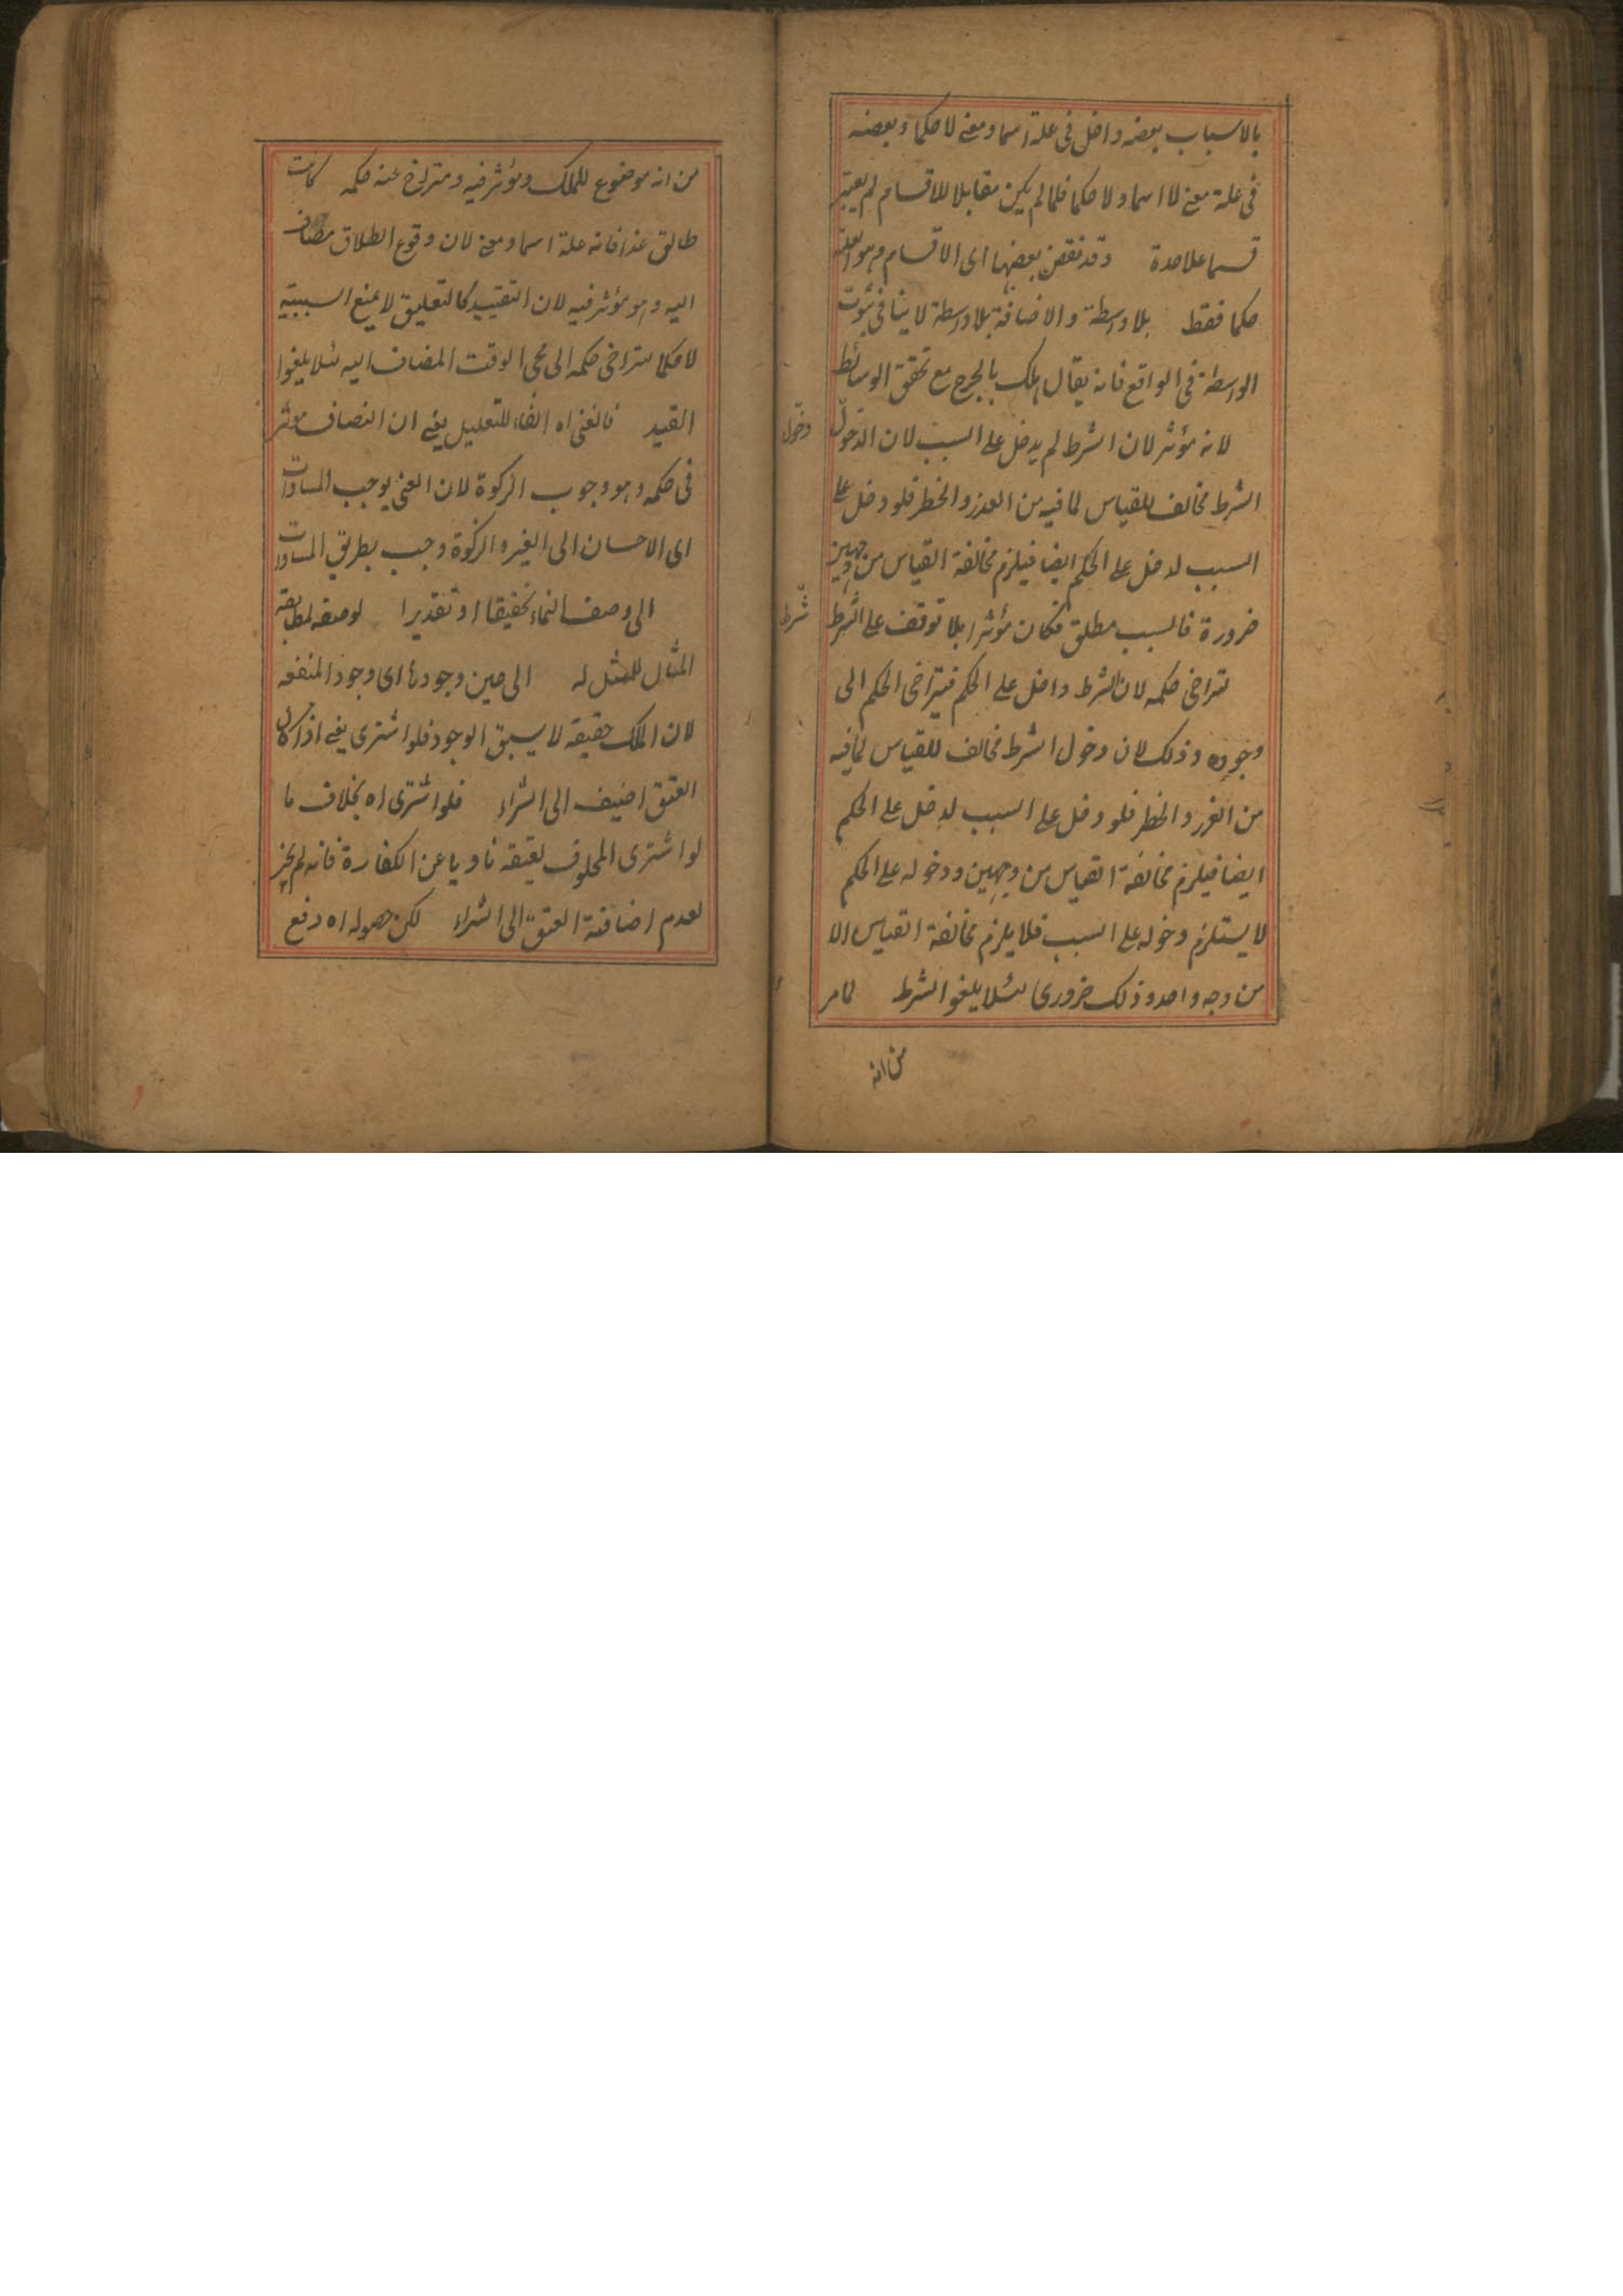 بالاسباب بعضه داخل فى علة اسما ومعنى لا حكما وبعضه
فى علة معنى لا اسما ولا حكما فلما لم يكن مقابلا للاقسام لم يعتبر
قسما علاحدة وقد نقض بعضها اى الاقسام وهو العلة
حكما فقط بلا واسطة والاضافة بلا واسطة لا ينافى ثبوت
الواسطة فى الواقع فانه يقال هلك بالجرح مع تحقق الوسائط
لانه مؤثر لان الشرط لم يدخل على السبب لان الدخول
دخول
الشرط مخالف للقياس لما فيه من الغرر والخطر فلو دخل على
السبب لدخل على الحكم ايضا فيلزم مخالفة القياس من وجهين
ضرورة فالسبب مطلق فكان مؤثرا بلا توقف على الشرط
شرط
لتراخى حكمه لان الشرط داخل على الحكم فيتراخى الحكم الى
وجوده وذلك لان دخول الشرط مخالف للقياس لما فيه
من الغرر والخطر فلو دخل على السبب لدخل على الحكم
ايضا فيلزم مخالفة القياس من وجهين ودخوله على الحكم
لا يستلزم دخوله على السبب فلا يلزم مخالفة القياس الا
من وجه واحد وذلك ضرورى لئلا يلغوا الشرط لما مر
من انه
من انه موضوع للملك ومؤثر فيه ومتراخ عنه حكمه كانت
طالق غدا فانه علة اسما ومعنى لان وقوع الطلاق مضاف
اليه وهو مؤثر فيه لان التقييد كالتعليق لا يمنع السببية
لا حكما لتراخى حكمه الى مجى الوقت المضاف اليه لئلا يلغوا
القيد فالغنى اه الفاء للتعليل يعنى ان النصاف مؤثر
فى حكمه وهو وجوب الزكوة لان الغنى يوجب المساوات
اى الاحسان الى الغير والزكوة وجب بطريق المساوات
الى وصف النماء تحقيقا او تقديرا لوصفه لمطابقة
المثال للممثل له الى حين وجودها اى وجود المنفعه
لان الملك حقيقه لا يسبق الوجود فلو اشترى يعنى اذا كان
العتق اضيف الى الشراء فلو اشترى اه بخلاف ما
لو اشترى المحلوف بعتقه ناويا عن الكفارة فانه لم يجز
لعدم اضافة العتق الى الشراء لكن حصوله اه دفع